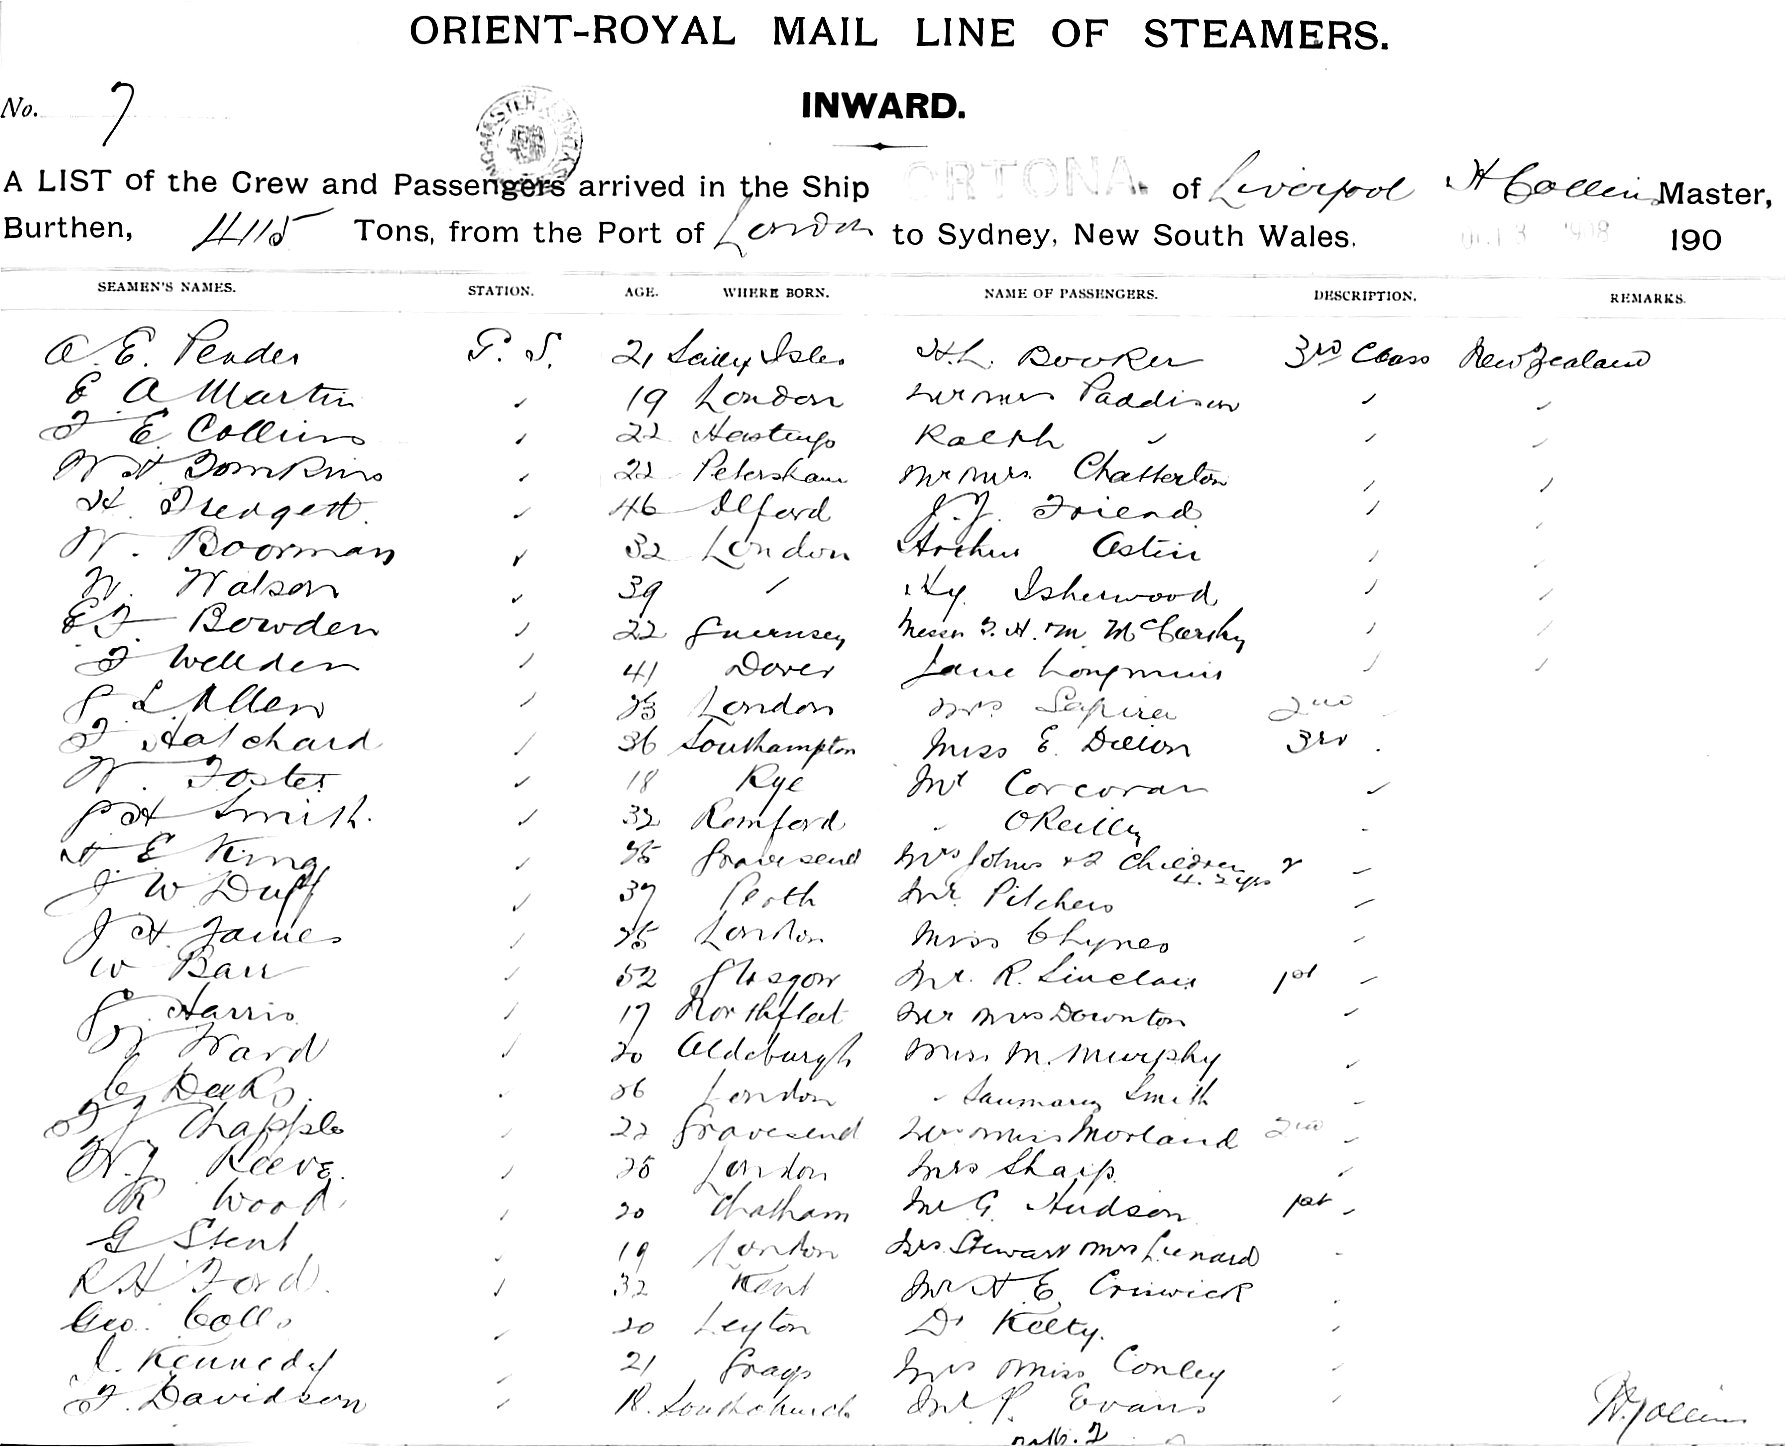 ORIENT-ROYAL MAIL LINE OF STEAMERS.
No. 7
INWARD.
A LIST of the Crew and Passengers arrived in the Ship ORTONA. of Liverpool A Collins Master,
Burthen, 4115 Tons, from the Port of London to Sydney, New South Wales. 190
SEAMEN'S NAMES. STATION. AGE. WHERE BORN. NAME OF PASSENGERS. DESCRIPTION. REMARKS.
A E. Pender 21 Scilly Isles H.L. Booker 3rd Class New Zealand
E A Martin ✓ 19 London Paddison ✓ ✓
F E Collins ✓ 22 Hastings Ralph ✓ ✓ ✓
W H Tomkins ✓ 22 Petersham Mr Mrs. Chatterton ✓ ✓
H. Tredgett. ✓ 46 Ilford J.J. Friend ✓ ✓
W. Boorman ✓ 32 London Arthur Astin ✓ ✓
W. Watson ✓ 39 ✓ Hy. Isherwood ✓ ✓
E F Bowden ✓ 22 Guernsey McCarthy ✓ ✓
F Wellden ✓ 41 Dover Jane Longmuir ✓ ✓
G L. Allen ✓ 23 London Mrs Sapira 2nd
F Hatchard ✓ 36 Southampton Miss E. Dillon 3rd
W. Foster ✓ 18 Rye Mr Corcoran ✓
G H Smith. ✓ 32 Romford " OReilly
H E King ✓ 25 Gravesend Mrs Johns & 2 Children ✓
4. 2 yrs
J W Duff ✓ 37 Perth Mr. Pitchers ✓
J H. James ✓ 25 London Miss Chynes ✓
W Barr ✓ 52 Glasgow Mr. R. Sinclair 1st ✓
G. Harris ✓ 17 Northfleet Mr Mrs Downton ✓
W Ward ✓ 20 Aldeburgh Miss M. Murphy ✓
C Deeks. 26 London " Saumarez Smith
F J Chapple ✓ 22 Gravesend Miss Morland 2nd
W.J Reeve. ✓ 25 London Mrs Sharp. ✓
R Wood ✓ 20 Chatham Mr G. Hudson 1st
G Stent ✓ 19 London Mrs Stewart Mrs Lienard
R H Ford. ✓ 32 Kent Mr H E. Criswick
Geo. Colls ✓ 20 Leyton Dr Kelty. ✓
J. Kennedy ✓ 21 Grays Mrs Miss Conley ✓
F. Davidson ✓ 18. Southchurch Mr P. Evans ✓
A. Collins